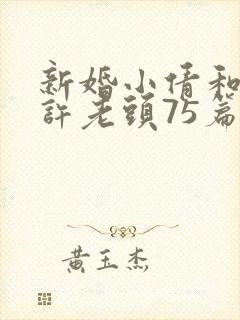 新婚小倩和
許老頭75篇
黃玉杰